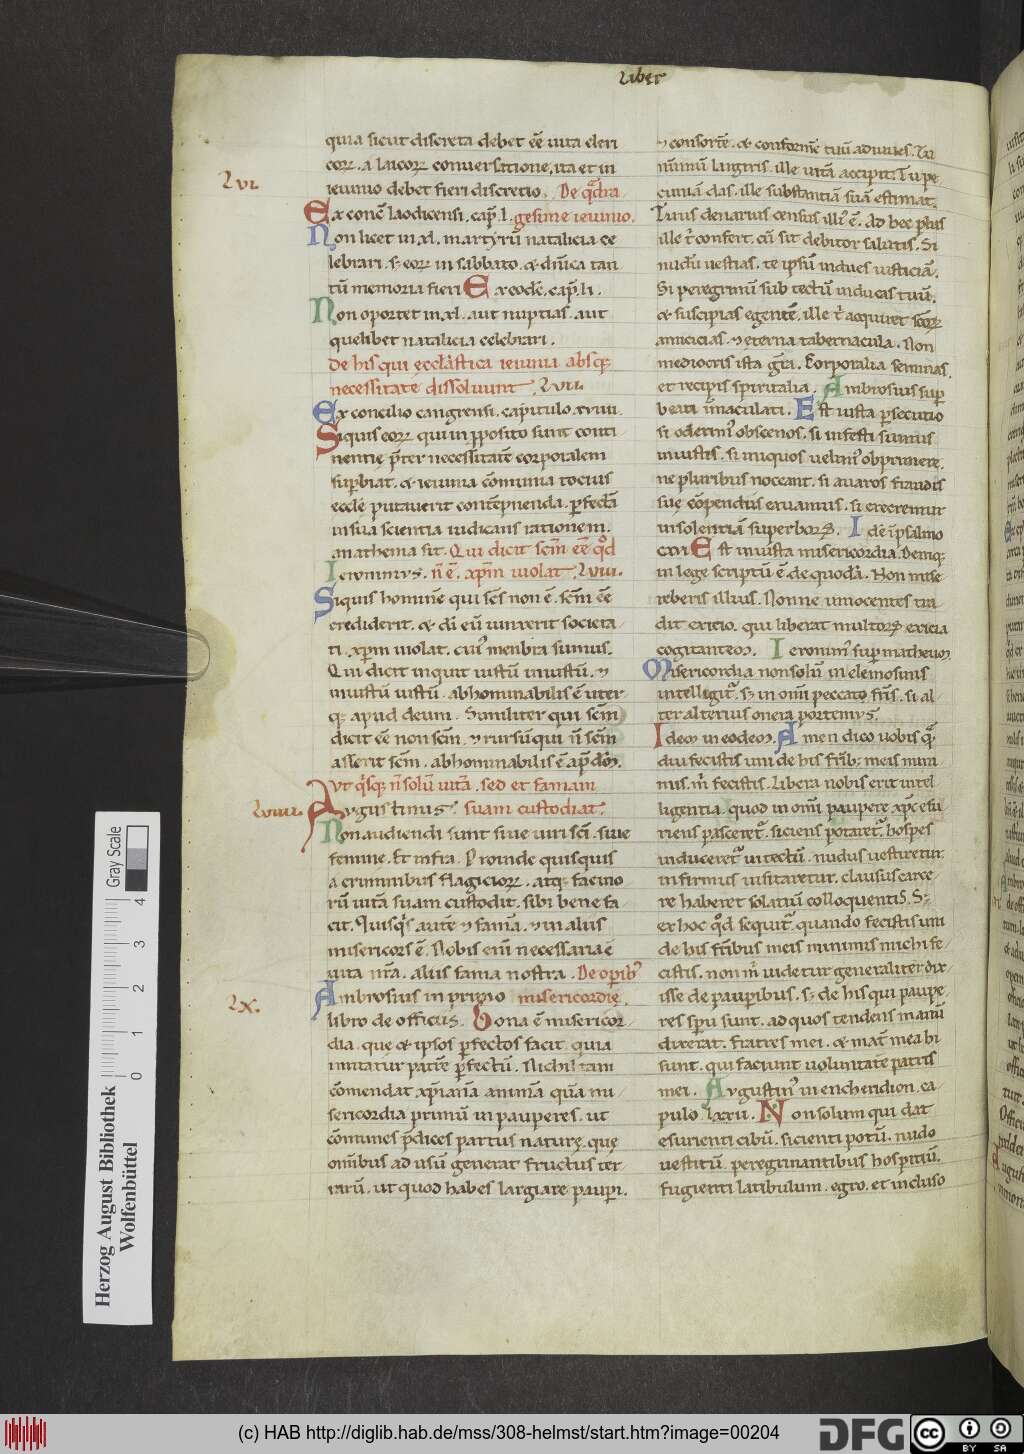 Liber
quia sicut discreta debet eē uita cleri
coꝝ. a laicoꝝ conuersatione, ita et in
ieiunio debet fieri discretio. De q̄dra
Lvi.
Ex conc̄ laodicensi. cap̄. l. gesime ieiunio.
Non licet in xl. martyrū natalicia ce
lebrari. s; eoꝝ in sabbato. & dn̄ica tan
tū memoria fieri Ex eodē. cap̄. li.
Non oportet in xl. aut nuptias. aut
quelibet natalicia celebrari.
De his qui eccl̄astica ieiunia absq;
necessitate dissoluunt. Lvii.
Ex concilio cangrensi. capitulo. xviii.
Siquis eoꝝ qui in p̱posito sunt conti
nentię p̄ter necessitatē corporalem
sup̱biat. & ieiunia cōmunia tocius
eccl̄e putauerit contēpnenda. p̱fectā
in sua scientia iudicans rationem.
anathema sit. Qui dicit sc̄m eē qđ
Ieronimys. n̄ ē. xp̄m uiolat. Lviii.
Siquis hominē qui sc̄s non ē. sc̄m eē
crediderit. & dī eū iunxerit societa
ti. xp̄m uiolat. cui' menbra sumus.
Qui dicit inquit iustū iniustū. ⁊
iniustū iustū. abhominabilis ē uter
q; apud deum. Similiter qui sc̄m
dicit eē non sc̄m. ⁊ rursū qui n̄ sc̄m
asserit sc̄m. abhominabilis ē ap̄ dōm.
Vt q̇sq; n̄ solū uitā. sed et famam
Lviiii.
Avgustinus. suam custodiat.
Non audiendi sunt siue uiri sc̄i. siue
femine. Et infra. Proinde quisquis
a criminibus flagicioꝝ. atq; facino
rū uitā suam custodit. sibi bene fa
cit. Quisq̇s autē ⁊ famā. ⁊ in alius
misericors ē. Nobis eni̅ necessaria ē
uita nr̄a. aliis fama nostra. De opib'
Lx.
Ambrosius in primo misericordię.
libro de officiis. Bona ē misericor
dia. que & ipsos p̱fectos facit. quia
imitatur patrē p̱fectū. Nichil tam
cōmendat xp̄ianā animā quā mi
sericordia primū in pauperes. ut
cōmunes p̄dices partus naturę. quę
om̄ibus ad usū generat fructus ter
rarū. ut quod habes largiare paup̱i.
⁊ consortē. & conformē tuū adiuues. Tu
nūmū largiris. ille uitā accipit. Tu pe
cuniā das. ille substantiā suā estimat.
Tuus denarius census illi' ē. Ad hec plus
ille t̄ confert. cū sit debitor salutis. Si
nudū uestias. te ipsū indues iusticiā.
Si peregrinū sub tectū inducas tuū.
& suscipias egentē. ille t̄ acquiret sc̄oꝝ
amicicias. ⁊ ęterna tabernacula. Non
mediocris ista gr̄a. Corporalia seminas.
et recipis spiritalia. Ambrosius sup̱
beati īmaculati. Est iusta p̱secutio
si oderim' obscenos. si infesti simus
iniustis. si iniquos uelim' obprimere.
ne pluribus noceant. si auaros fraudis
suę cōpendiis eruamus. si exerceamur
insolentiā superboꝝ. Idē ī psalmo
cxvi Est iniusta misericordia. Deniq;
in lege scriptū ē. de quodā. Non mise
reberis illius. Nonne innocentes tra
dit exicio. qui liberat multoꝝ exicia
cogitantem. Ieronim' sup̱ matheum
Misericordia non solū in elemosinis
intelligit'. s; in om̄i peccato fr̄is. si al
ter alterius onera portemys.
Idem in eodem. Amen dico uobis qđ
diu fecistis uni de his fr̄ib; meis mini
mis. m̄ fecistis. Libera nobis erit intel
ligentia. quod in om̄i paupere xp̄c esu
riens pasceret'. siciens potaret'. hospes
induceret' in tectū. nudus uestiretur.
infirmus uisitaretur. clausus carce
re haberet solatiū colloquentis. S;
ex hoc qđ sequit'. quando fecistis uni
de his fr̄ibus meis minimis michi fe
cistis. non m̄ uidetur generaliter dix
isse de pauperibus. s; de his qui paupe
res sp̄u sunt. ad quos tendens manū
dixerat. fratres mei. & mat̄ mea hi
sunt. qui faciunt uoluntatē patris
mei. Avgustin' in encheridion. ca
pulo lxxii. Non solum qui dat
esurienti cibū. sicienti potū. nudo
uestitū. peregrinantibus hospitiū.
fugienti latibulum. egro. et incluso
Herzog August Bibliothek
Wolfenbüttel
Gray Scale
0 1 2 3 4
(c) HAB http://diglib.hab.de/mss/308-helmst/start.htm?image=00204
DFG cc BY SA